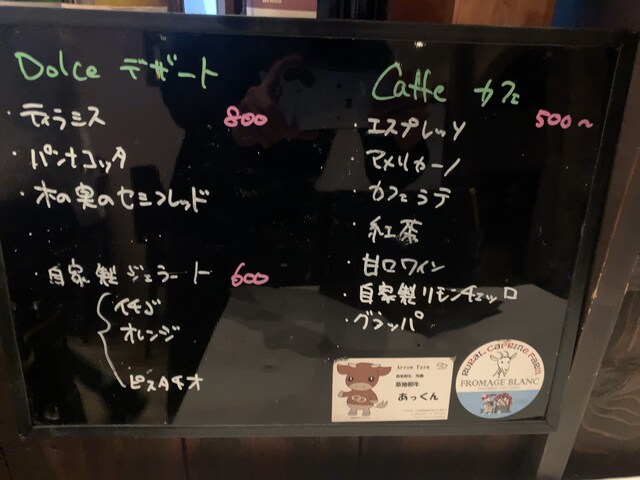 Dolce デザート
・ティラミス 800
・パンナコッタ
・木の実のセミフレッド
・
・自家製ジェラート 600
イチゴ
オレンジ
ピスタチオ
Caffe カフェ
・エスプレッソ 500～
・アメリカーノ
・カフェラテ
・紅茶
・甘口ワイン
・自家製リモンチェッロ
・グラッパ
Arrow Farm
あっくん
RURAL CAPRINE FARM
FROMAGE BLANC